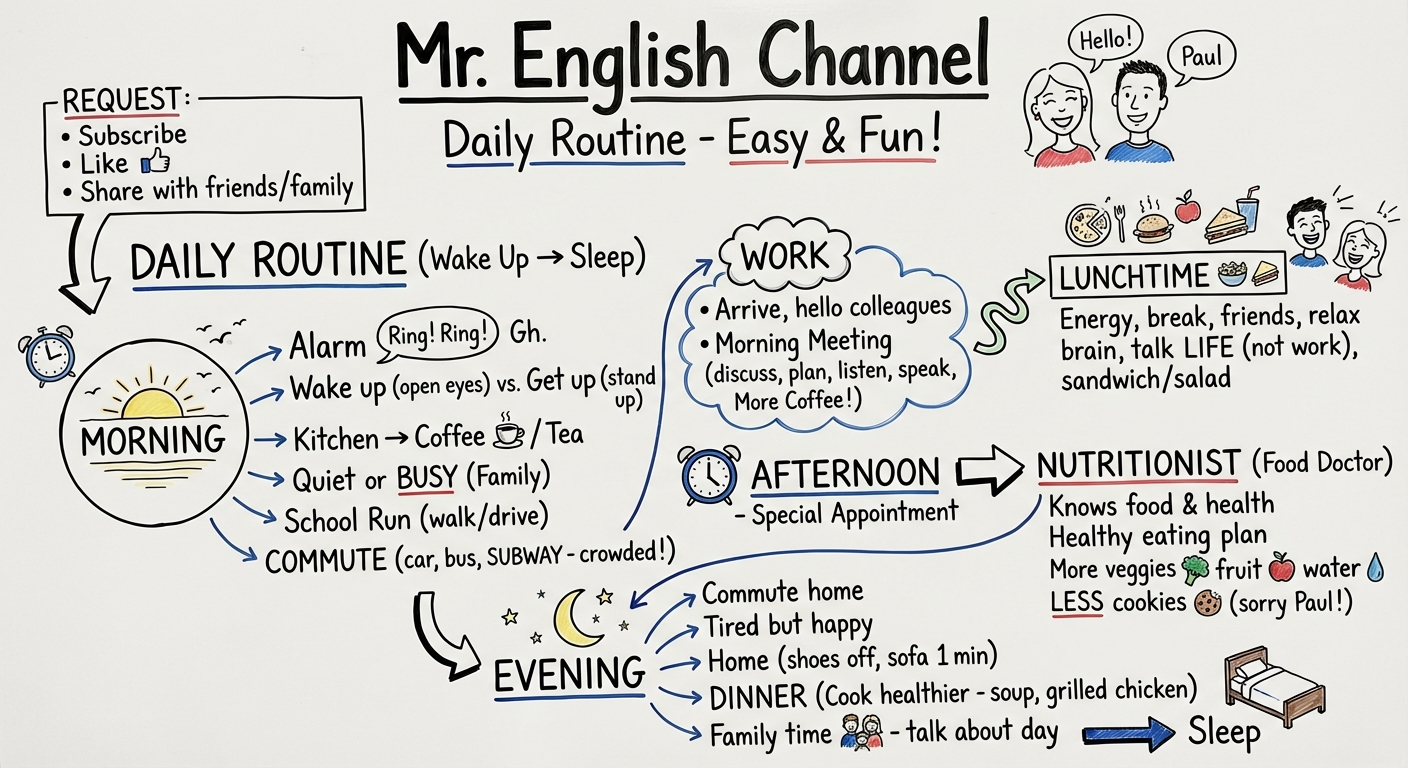 Mr. English Channel
Daily Routine - Easy & Fun!
Hello!
Paul
REQUEST:
• Subscribe
• Like
• Share with friends/family
DAILY ROUTINE (Wake Up → Sleep)
MORNING
Alarm Ring! Ring! Gh.
Wake up (open eyes) vs. Get up (stand
up)
Kitchen → Coffee / Tea
Quiet or BUSY (Family)
School Run (walk/drive)
COMMUTE (car, bus, SUBWAY - crowded!)
WORK
• Arrive, hello colleagues
• Morning Meeting
(discuss, plan, listen, speak,
More Coffee!)
LUNCHTIME
Energy, break, friends, relax
brain, talk LIFE (not work),
sandwich/salad
AFTERNOON
- Special Appointment
NUTRITIONIST (Food Doctor)
Knows food & health
Healthy eating plan
More veggies fruit water
LESS cookies (sorry Paul!)
EVENING
Commute home
Tired but happy
Home (shoes off, sofa 1 min)
DINNER (Cook healthier - soup, grilled chicken)
Family time - talk about day
Sleep